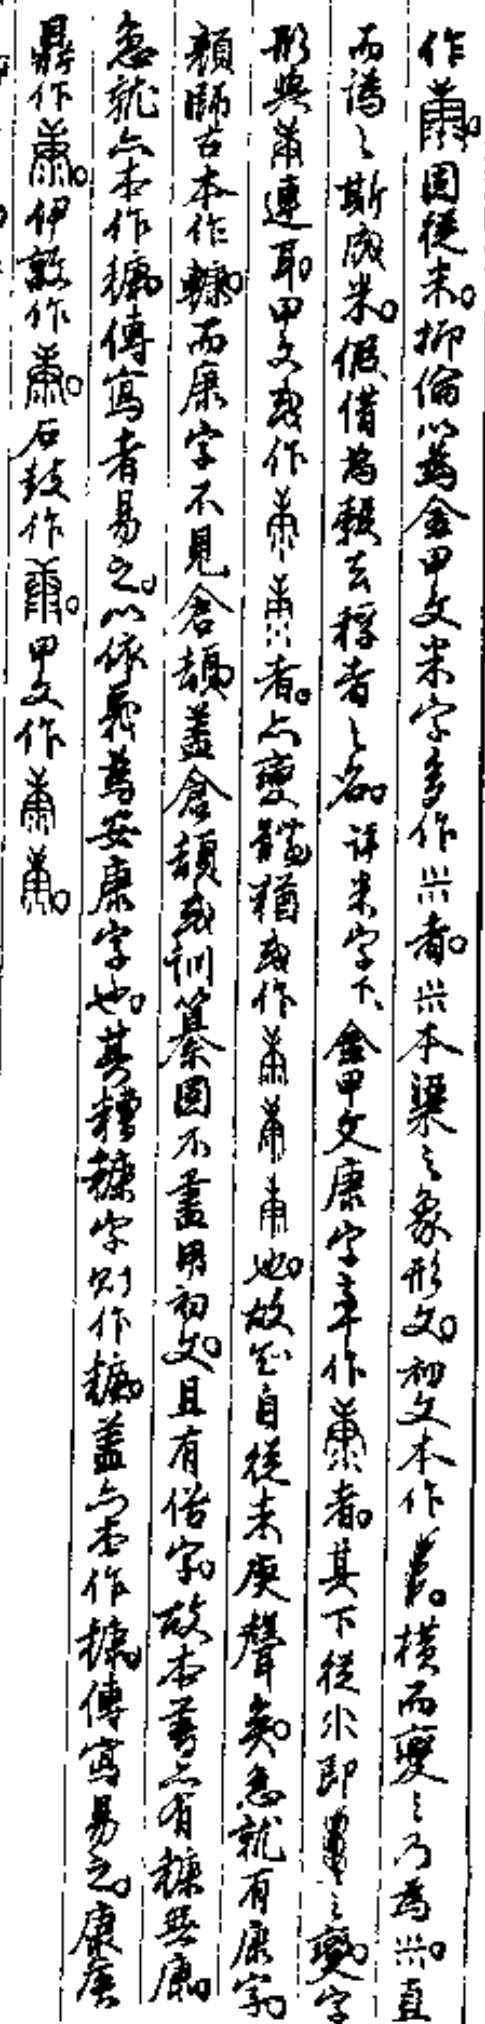 作。固從米。抑倫以爲金甲文米字多作者。本粱之象形文。初文本作。橫而變之乃爲。直
而譌之斯成米。假借爲穀去稃者之名。詳米字下。金甲文康字率作者。其下從即之變。字
形與連耳。甲文或作者。亦變體。猶或作也。故知自從米庚聲矣。急就有康字。
顏師古本作糠。而康字不見倉頡。蓋倉頡或訓纂固不盡用初文。且有俗字。故本書亦有糠無康。
急就亦本作穅。傳寫者易之。以依義爲安康字也。其糟糠字則作穅。蓋亦本作穅。傳寫易之。康侯
鼎作。伊敦作。石鼓作。甲文作。